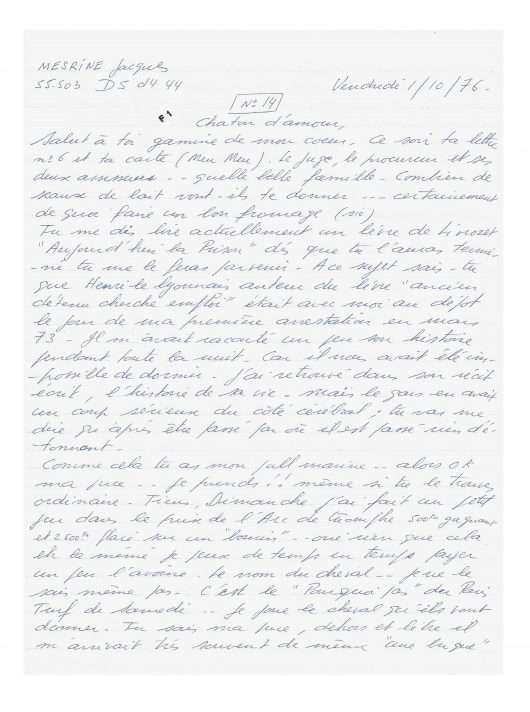 MESRINE Jacques
55.503 D5 d4 44
Vendredi 1/10/76-
N° 14
F1
Chaton d'amour,
Salut à toi gamine de mon coeur. Ce soir ta lettre
n°6 et ta carte (Meu Meu). Le juge, le procureur et ses
deux .. quelle belle famille - Combien de
seaux de lait vont-ils te donner --- certainement
de quoi faire un bon fromage (sic)
Tu me dis lire actuellement un livre de Livrozet
"Aujourd'hui la Prison" dés que tu l'auras termi-
-né tu me le feras parvenir - A ce sujet sais-tu
que Henri le lyonnais auteur du livre "ancien
détenu cherche emploi" était avec moi au dépot
le jour de ma première arrestation en mars
73 - Il m'avait raconté un peu son histoire
pendant toute la nuit - Car il nous avait été im-
-possible de dormir - J'ai retrouvé dans son récit
écrit, l'histoire de sa vie - Mais le gars en avait
un coup sérieux du côté cérébral : tu vas me
dire qu'après être passé par où il est passé rien d'é-
tonnant -
Comme cela tu as mon pull marine -- alors OK
ma puce -- je prends !! même si tu le trouves
ordinaire - Tiens, Dimanche j'ai fait un petit
jeu dans le prix de l'Arc de triomphe 500 gagnant
et 2500 placé sur un -- oui rien que cela
eh la même je peux de temps en temps payer
un peu l'avoine. Le nom du cheval -- je ne le
sais même pas. C'est le "Pourquoi pas" du Paris
Turf de samedi -- Je joue le cheval qu'ils vont
donner - Tu sais ma puce, dehors et libre il
m'arrivait très souvent de même "une brique"